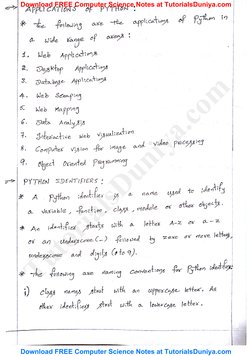 Download FREE Computer Science Notes at TutorialsDuniya.com
APPLICATIONS OF PYTHON :
* The following are the applications of Python in
a wide range of areas :
1. Web Applications
2. Desktop Applications
3. Database Applications
4. Web Scraping
5. Web Mapping
6. Data Analysis
7. Interactive Web Visualization
8. Computer vision for image and video processing
9. Object Oriented Programming
PYTHON IDENTIFIERS :
* A Python identifier is a name used to identify
a variable, function, class, module or other objects.
* An identifier starts with a letter A-Z or a-z
or an underscore (_) followed by zero or more letters,
underscores and digits (0 to 9).
* The following are naming conventions for Python identifiers
i) Class names start with an uppercase letter. All
other identifiers start with a lowercase letter.
Download FREE Computer Science Notes at TutorialsDuniya.com